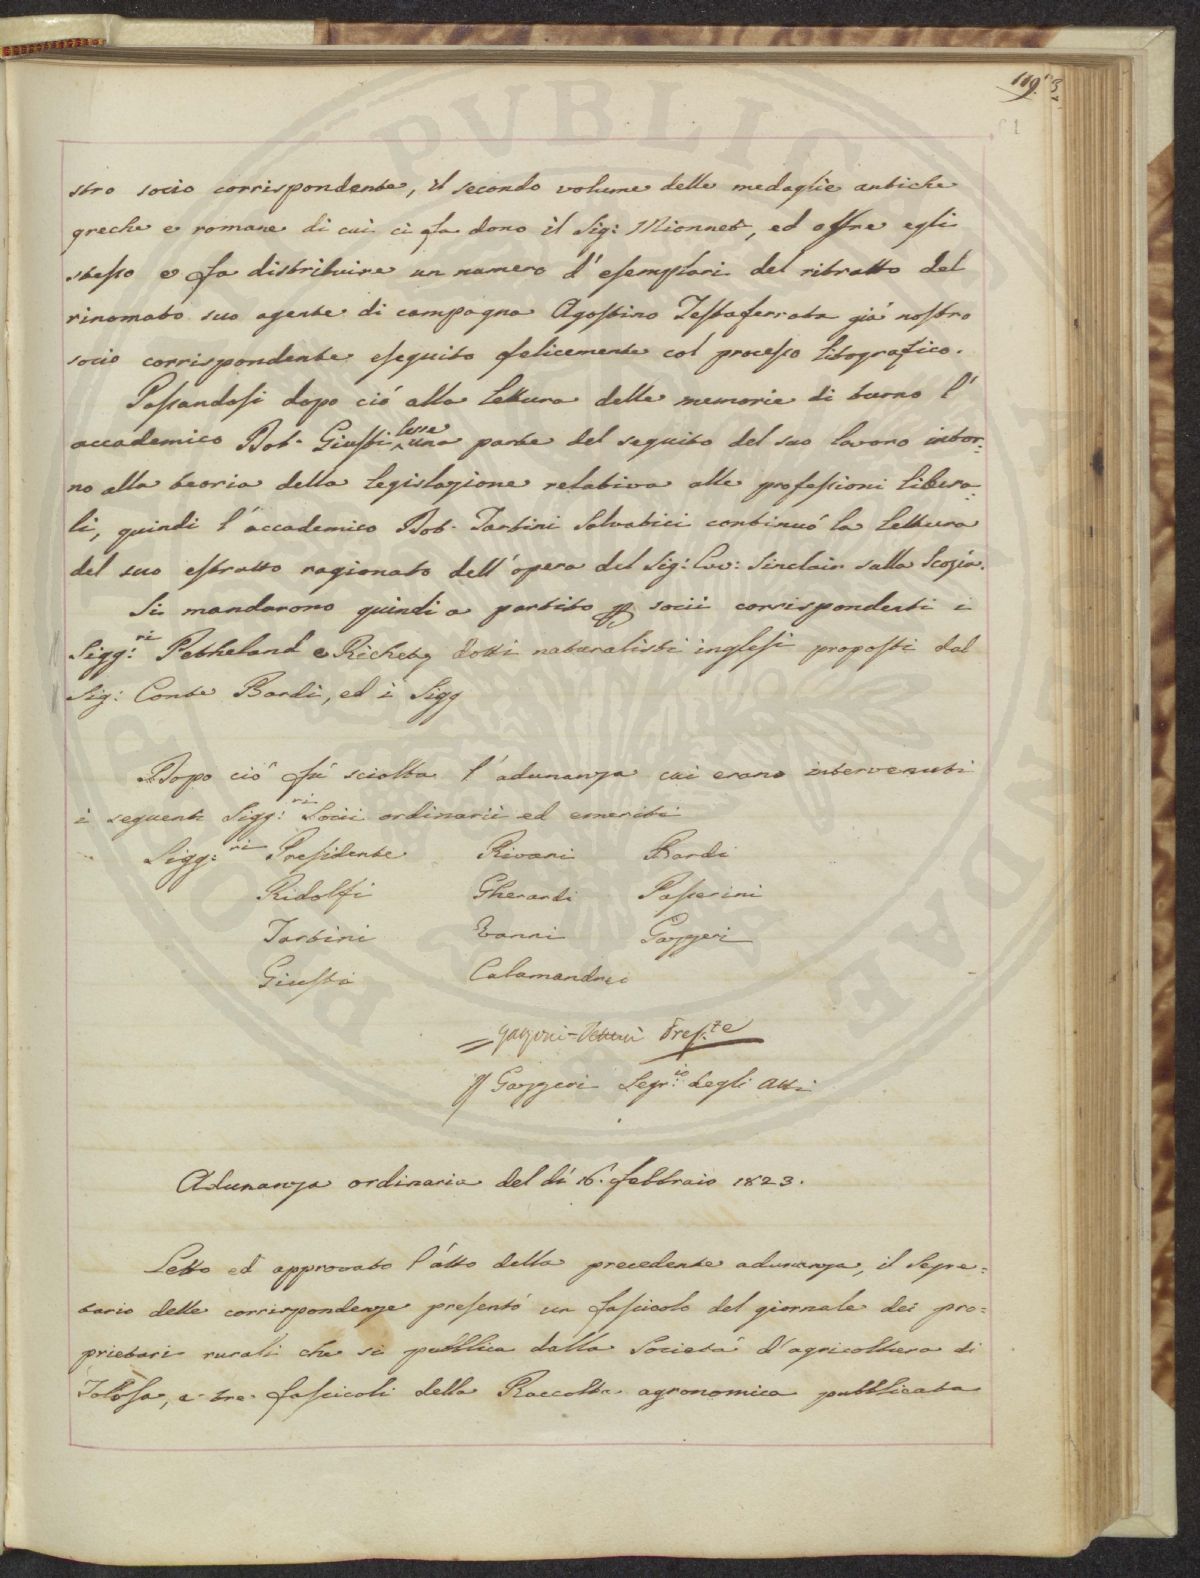 119.
stro socio corrispondente, il secondo volume delle medaglie antiche
greche e romane di cui ci fa dono il Sig: Mionnet, ed offre egli
stesso e fa distribuire un numero d'esemplari del ritratto del
rinomato suo agente di campagna Agostino Testaferrata già nostro
socio corrispondente eseguito felicemente col processo litografico.
Passandosi dopo ciò alla lettura delle memorie di turno l'
accademico Dot. Giusti lesse una parte del seguito del suo lavoro intor:
no alla teoria della legislazione relativa alle professioni libera-
li, quindi l'accademico Dot. Tartini Salvatici continuò la lettura
del suo estratto ragionato dell'opera del Sig: Cav: Sinclair sulla Scozia.
Si mandarono quindi a partito p socii corrispondenti i
Sigg:ri Petheland e Richety dotti naturalisti inglesi proposti dal
Sig: Conte Bardi, ed i Sigg
Dopo ciò fù sciolta l'adunanza cui erano intervenuti
i seguenti Sigg:ri Socii ordinarii ed emeriti
Sigg:ri Presidente Rivani Bardi
Ridolfi Gherardi Passerini
Tartini Vanni Gazzeri
Giusti Calamandrei
Garzoni-Venturi Pres.te
G Gazzeri Segr.io degli Atti
Adunanza ordinaria del dì 16. febbraio 1823.
Letto ed approvato l'atto della precedente adunanza, il Segre:
tario delle corrispondenze presentò un fascicolo del giornale dei pro:
prietari rurali che si pubblica dalla Società d'agricoltura di
Tolosa, e tre fascicoli della Raccolta agronomica pubblicata